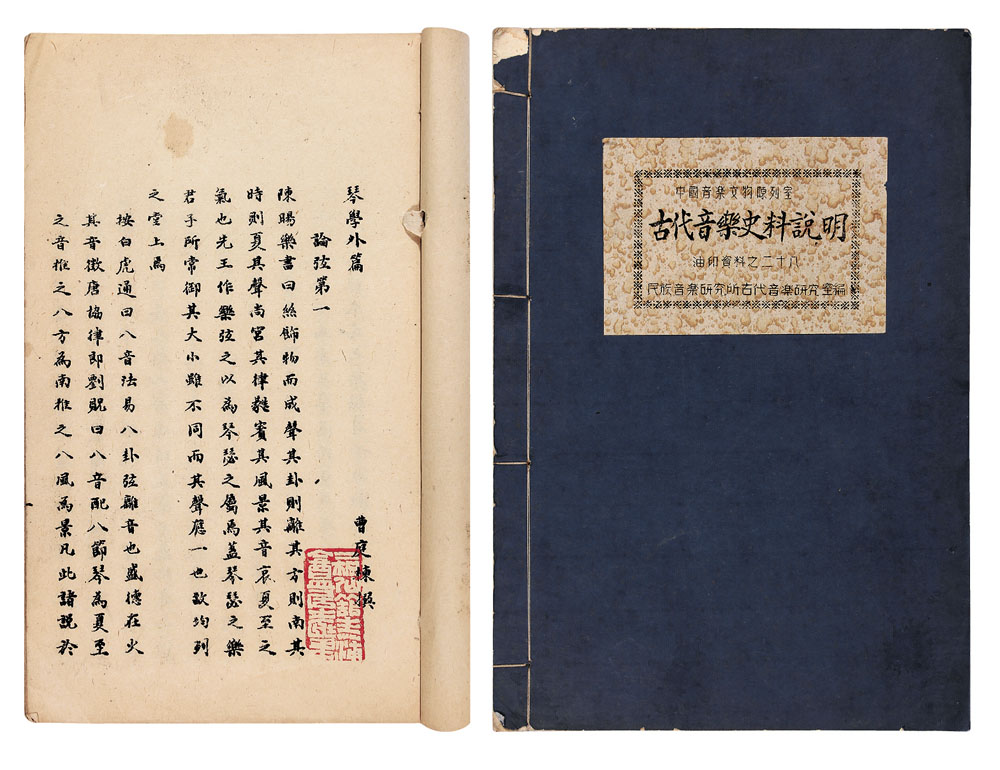 琴學外篇
曹庭棟撰
論弦第一
陳賜樂書曰絲飾物而成聲其卦則離其方則南其
時則夏其聲尚宮其律蕤賓其風景其音哀夏至之
氣也先王作樂弦之以為琴瑟之屬焉蓋琴瑟之樂
君子所常御其大小雖不同而其聲應一也故均列
之堂上焉
按白虎通曰八音法易八卦弦離音也盛德在火
其音徵唐協律郎劉貺曰八音配八節琴為夏至
之音推之八方為南推之八風為景凡此諸說於
中國音楽文物陳列室
古代音樂史料說明
油印資料之二十八
民族音楽研究所古代音楽研究室編